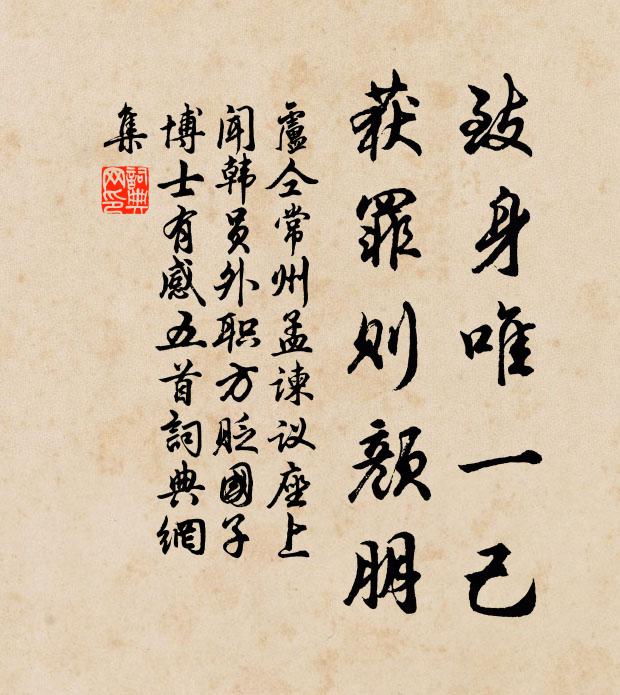 致身唯一己
获罪则颜朋
盧仝常州孟諫议座上
闻韩员外职方贬國子
博士有感五首詞典網
集
詞典
网印